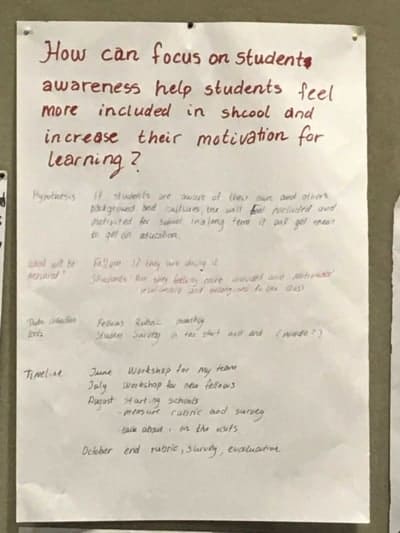 How can focus on students
awareness help students feel
more included in shcool and
increase their motivation for
learning?
Hypothesis If students are aware of their own and others
background and cultures, the will feel included and
motivated for school. In long term it will get them
to get an education.
What will be measured? Fellow: If they are doing it
Students: Are they feeling more included and motivated
Data collection tools Fellows Rubric monthly
Student Survey in the start and end
Timeline June Workshop for my team
July Workshop for new fellows
August starting schools
- measure rubric and survey
- talk about, in the
October end rubric, survey, evaluation.